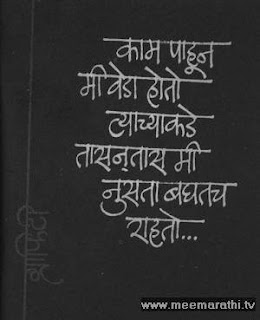 काम पाहून
मी वेडा होतो
त्याच्याकडे
तासन्‌तास मी
नुसता बघतच
राहतो...
ग्राफिटी
www.meemarathi.tv